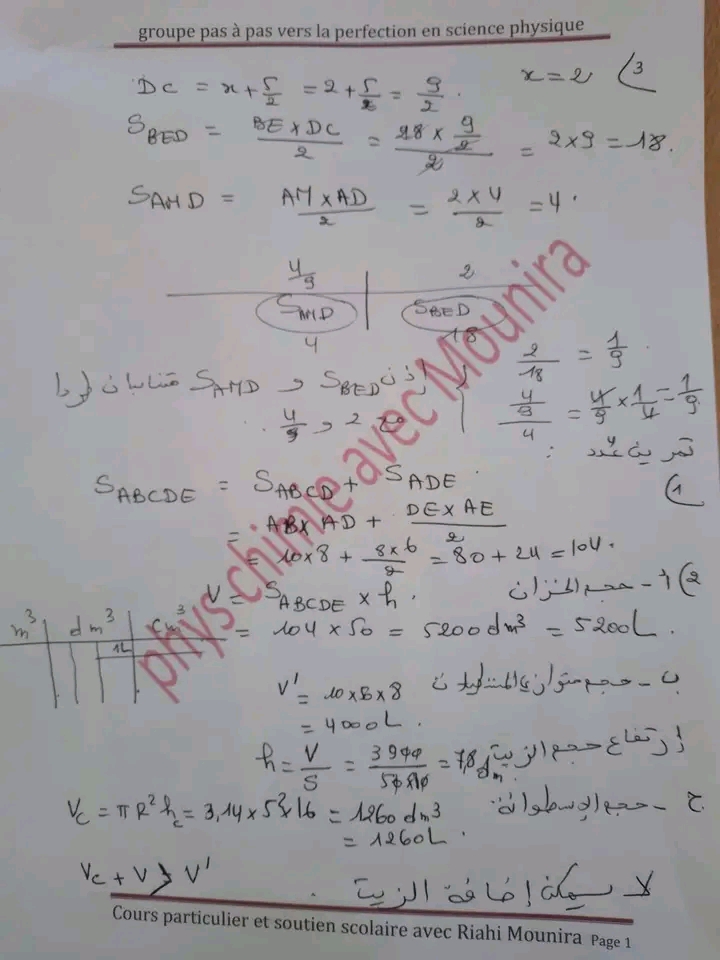 groupe pas à pas vers la perfection en science physique
3) x = 2
DC = x + 5/2 = 2 + 5/2 = 9/2 .
S_BED = (BE x DC)/2 = (28 x 9/2)/2 = 2 x 9 = 18.
S_AMD = (AM x AD)/2 = (2 x 4)/2 = 4 .
4/9 | 2
S_AMD | S_BED
4 | 18
2/18 = 1/9 .
(4/9)/4 = 4/9 x 1/4 = 1/9
إذن S_BED و S_AMD متناسبان طردا
مع 2 و 4/9 .
تمرين عدد :
1)
S_ABCDE = S_ABCD + S_ADE .
= AB x AD + (DE x AE)/2
= 10 x 8 + (8 x 6)/2 = 80 + 24 = 104 .
2) أ - حجم الخزان
V = S_ABCDE x h .
m³ | dm³ | cm³
1L
= 104 x 50 = 5200 dm³ = 5200 L .
ب - حجم متوازي المستطيلات
V' = 10 x 5 x 8
= 4000 L .
إرتفاع حجم الزيت
h = V/S = = 7,8 dm .
ج - حجم الإسطوانة
Vc = πR²hc = 3,14 x 5² x 16 = 1260 dm³
= 1260 L .
Vc + V > V'
لا يمكن إضافة الزيت .
phys chimie avec Mounira
Cours particulier et soutien scolaire avec Riahi Mounira Page 1